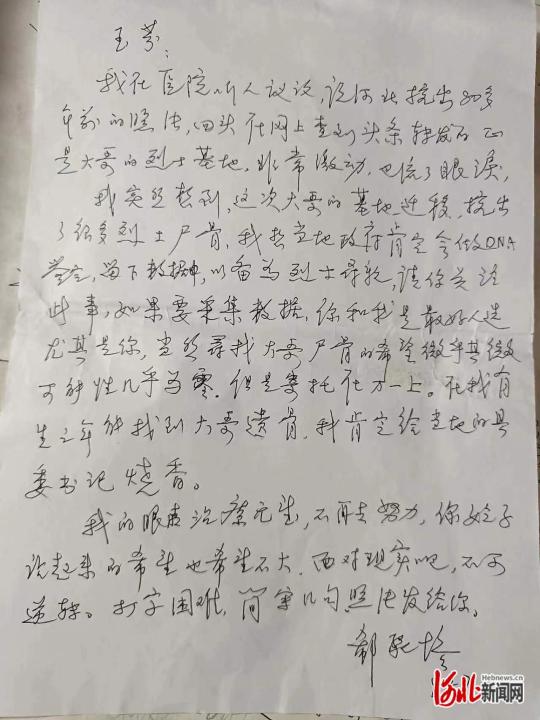 玉芬:
我在医院听人议论,说河北挖出80多
年前的照片,回头在网上查到头条转发的正
是大哥的烈士墓地,非常激动,也流了眼泪,
我突然想到,这次大哥的墓地迁移,挖出
了很多烈士尸骨,我想当地政府肯定会做DNA
鉴定,留下数据,以备为烈士寻亲,请你关注
此事,如果要采集数据,你和我是最好人选
尤其是你,当然寻找大哥尸骨的希望微乎其微
可能性几乎为零.但是寄托在万一上。在我有
生之年能找到大哥遗骨,我肯定给当地的县
委书记烧香。
我的眼睛治疗无望,不再去努力,你
说起来的希望也希望不大.面对现实吧,不可
逆转。打字困难,简写几句照片发给你。
郝
河北新闻网
Hebnews.cn